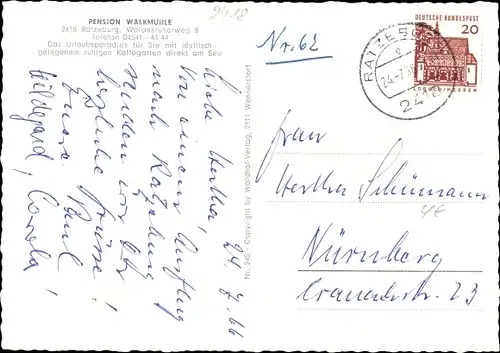 PENSION WALKMÜHLE
2418 Ratzeburg, Waldesruherweg 8
Telefon 04541 - 65 44
Das Urlaubsparadies für Sie mit idyllisch
gelegenem ruhigen Kaffeegarten direkt am See
2418
Nr. 62
24. 7. 66
Liebe Hertha,
Von einem Ausflug
nach Ratzeburg
senden wir Dir
herzliche Grüsse!
Paul,
Hildegard, Carola!
Nr. 245 - Copyright by Waldhof-Verlag, 2111 Wennerstorf
RATZEBURG
24.-7.
2418
DEUTSCHE BUNDESPOST
20
LORSCH/HESSEN
Frau
Hertha Schümann
4€
Nürnberg
Cranachstr. 23